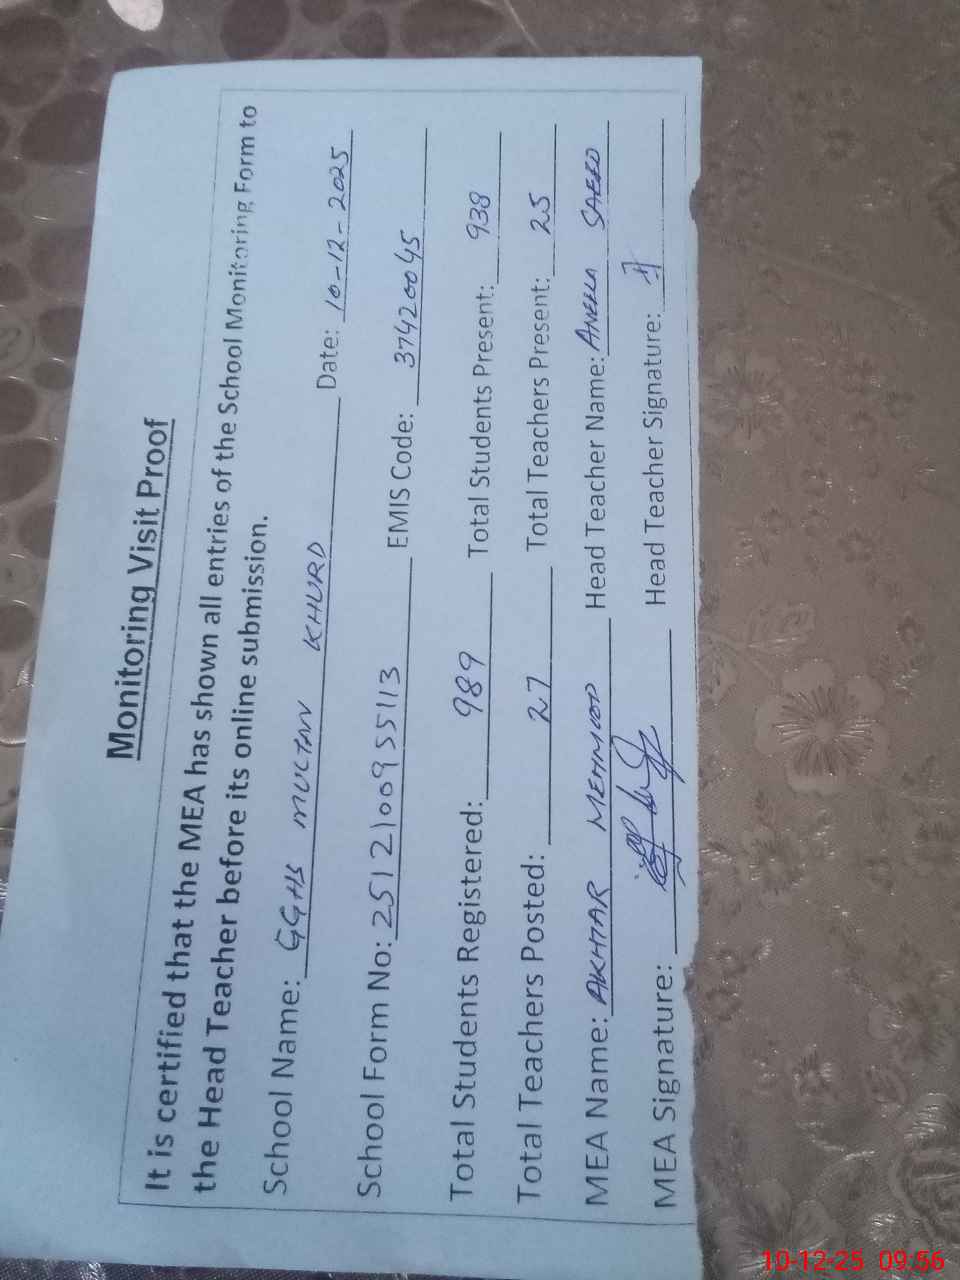 Monitoring Visit Proof
It is certified that the MEA has shown all entries of the School Monitoring Form to
the Head Teacher before its online submission.
School Name: GGHS MULTAN KHURD Date: 10-12-2025
School Form No: 2512100955113 EMIS Code: 37420045
Total Students Registered: 989 Total Students Present: 938
Total Teachers Posted: 27 Total Teachers Present: 25
MEA Name: AKHTAR MEHMOOD Head Teacher Name: ANEELA SAEED
MEA Signature: Head Teacher Signature:
10-12-25 09:56